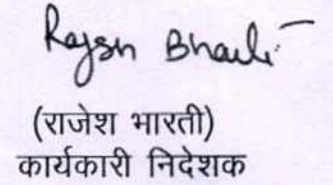 Rajesh Bharti
(राजेश भारती)
कार्यकारी निदेशक